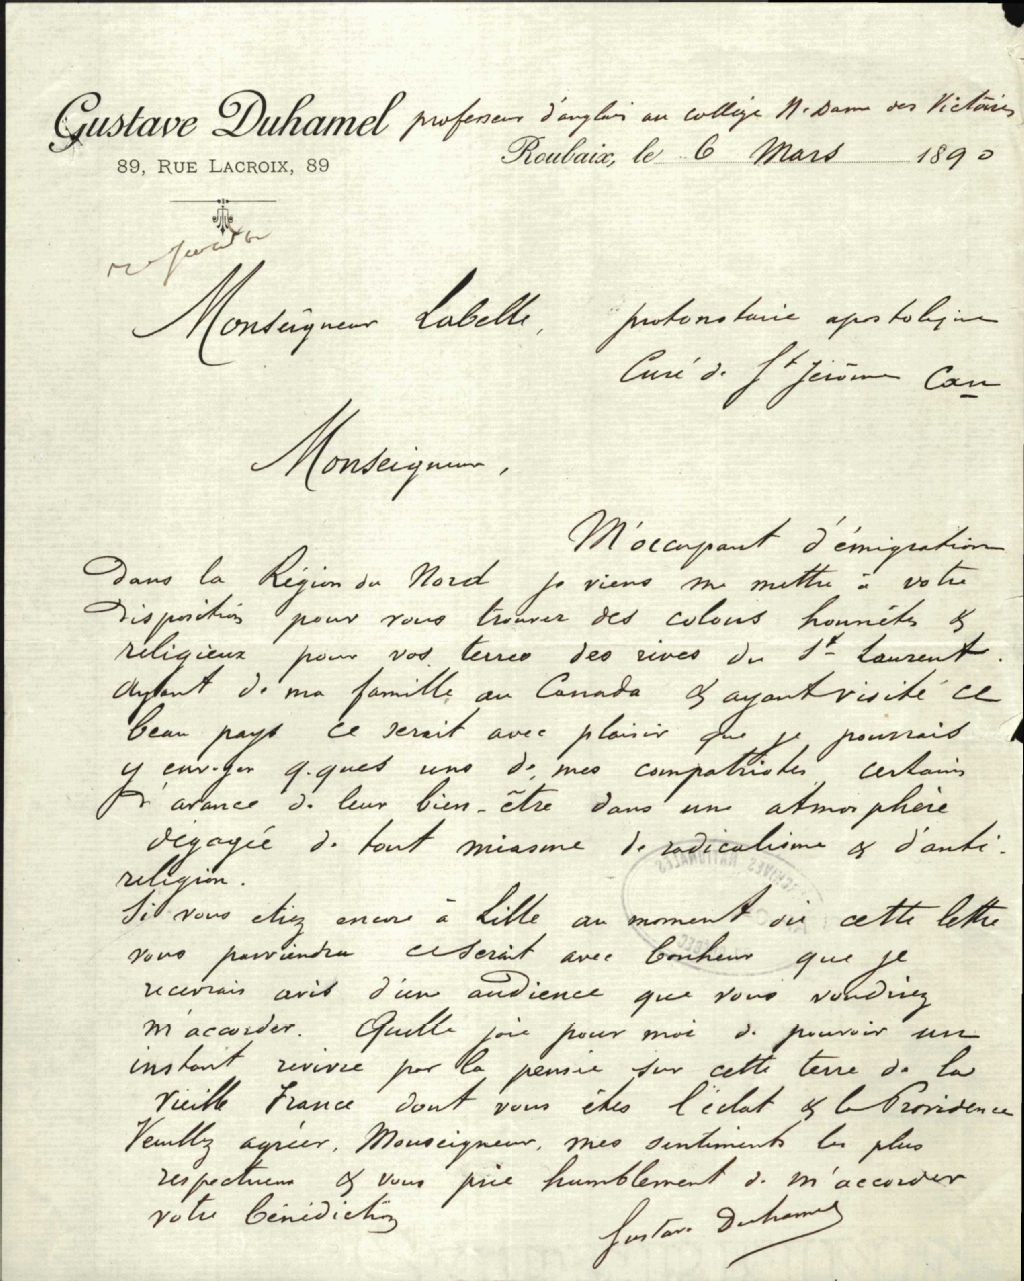 Gustave Duhamel professeur d'anglais au collège N. Dame des Victoires
89, RUE LACROIX, 89
Roubaix, le 6 Mars 1890
Monseigneur Labelle, protonotaire apostolique
Curé de St Jérôme Can
Monseigneur,
M'occupant d'émigration
dans la Région du Nord je viens me mettre à votre
disposition pour vous trouver des colons honnêtes &
religieux pour vos terres des rives du St Laurent.
Ayant de ma famille au Canada & ayant visité ce
beau pays ce serait avec plaisir que je pourrais
y envoyer q.ques uns de mes compatriotes, certains
d'avance de leur bien-être dans une atmosphère
dégagée de tout miasme de radicalisme & d'anti-
religion.
Si vous étiez encore à Lille au moment où cette lettre
vous parviendra ce serait avec bonheur que je
recevrais avis d'une audience que vous voudriez
m'accorder. Quelle joie pour moi de pouvoir un
instant revivre par la pensée sur cette terre de la
vieille France dont vous êtes l'éclat & la Providence
Veuillez agréer, Monseigneur, mes sentiments les plus
respectueux & vous prie humblement de m'accorder
votre bénédiction
Gustave Duhamel
ARCHIVES NATIONALES
QUEBEC